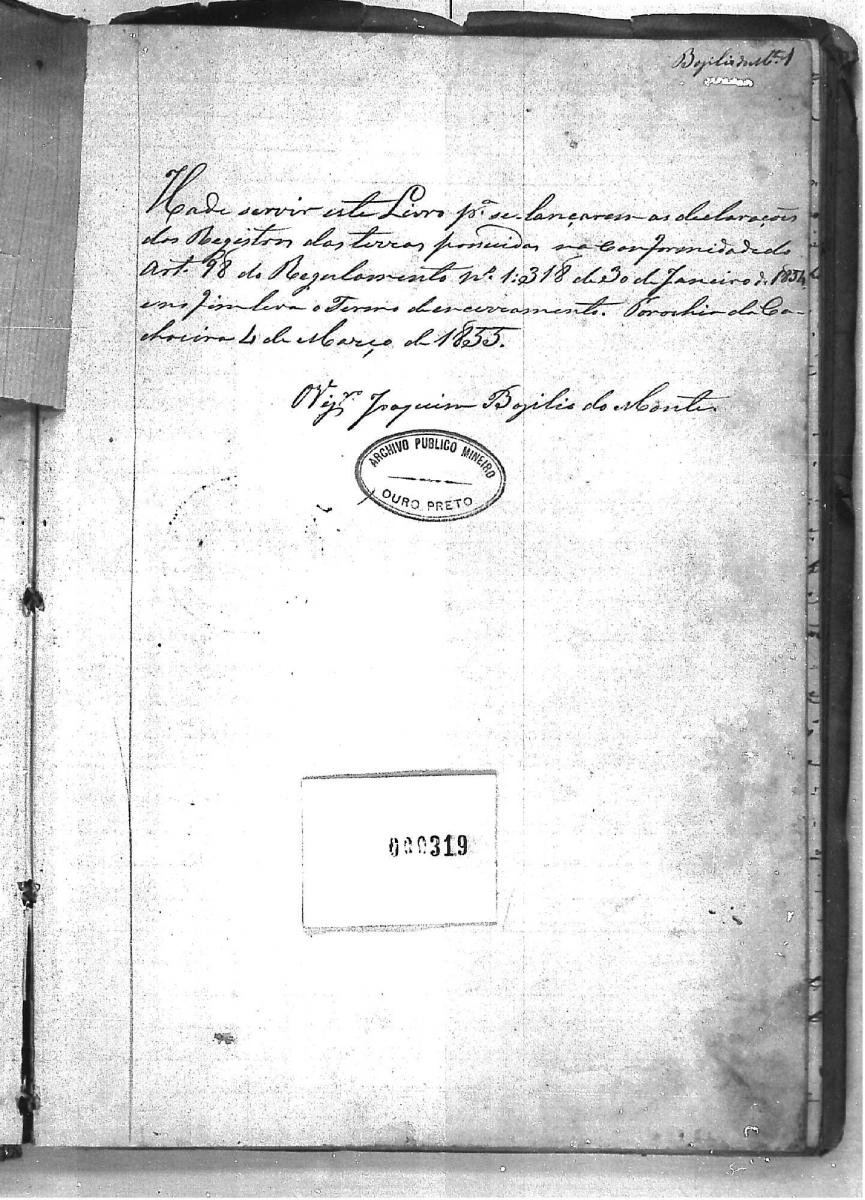 Bazilio do Mte. 1
Hade servir este Livro pª. se lançarem as declarações
dos Registros das terras possuidas na conformidade do
Art. 98 do Regulamento nº. 1:318 de 30 de Janeiro de 1854
e no fim leva o Termo de encerramento. Parochia da Ca-
choeira 4 de Março de 1855.
O Vigrº. Joaquim Bazilio do Monte
ARCHIVO PUBLICO MINEIRO
OURO PRETO
000319